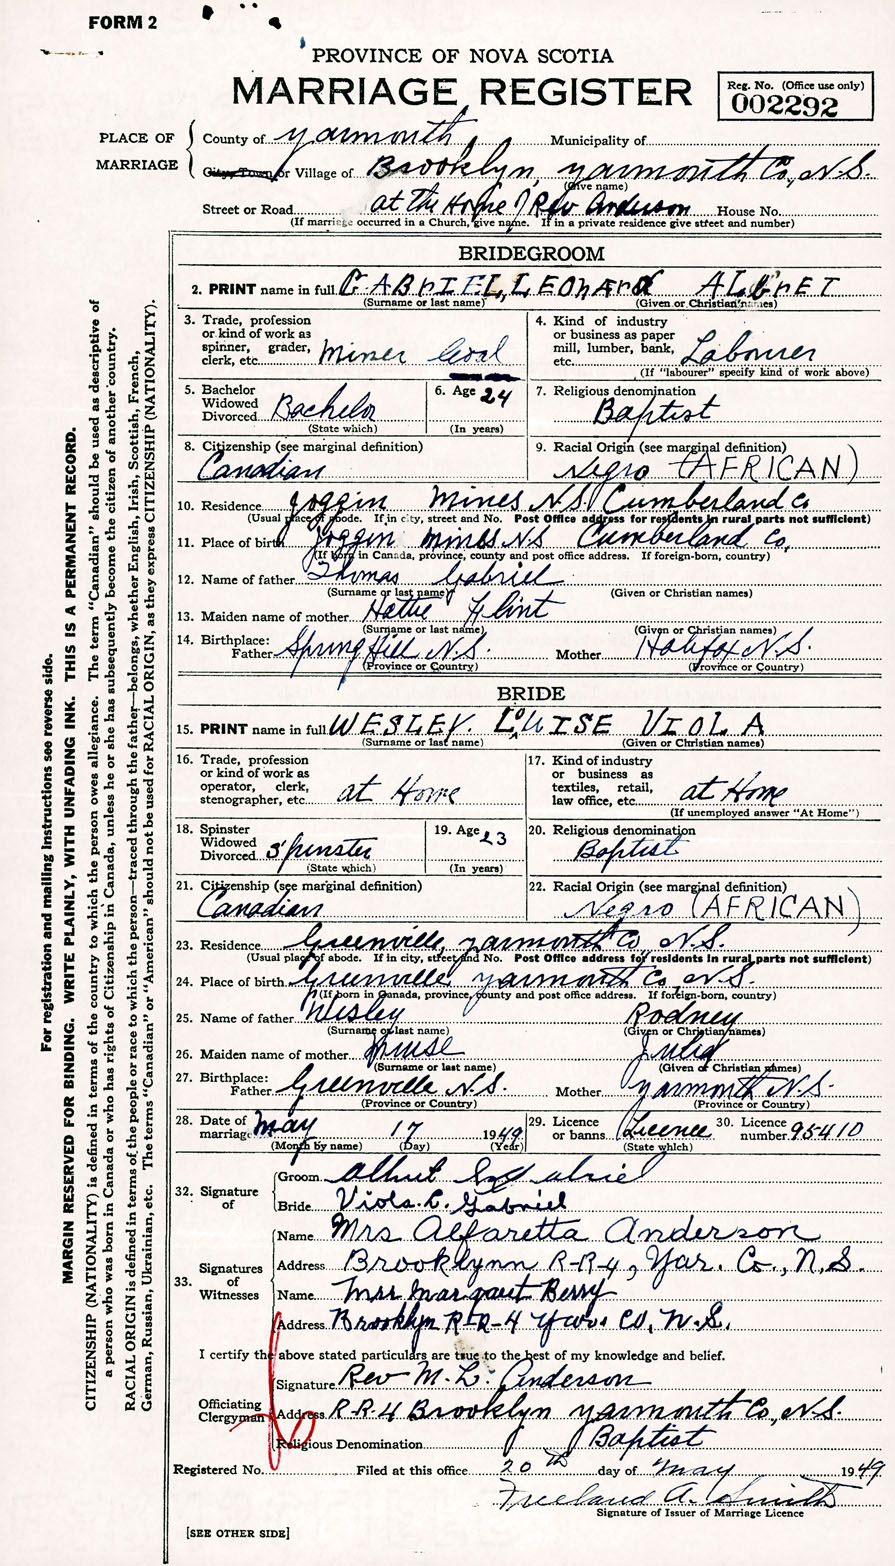 FORM 2
PROVINCE OF NOVA SCOTIA
MARRIAGE REGISTER
Reg. No. (Office use only)
002292
PLACE OF MARRIAGE
County of Yarmouth Municipality of
City, Town, or Village of Brooklyn, Yarmouth Co., N.S.
(Give name)
Street or Road at the Home of Rev Anderson House No.
(If marriage occurred in a Church, give name. If in a private residence give street and number)
BRIDEGROOM
2. PRINT name in full GABRIEL, LEONARD ALBRET
(Surname or last name) (Given or Christian names)
3. Trade, profession or kind of work as spinner, grader, clerk, etc. Miner Coal
4. Kind of industry or business as paper mill, lumber, bank, etc. Labourer
(If "labourer" specify kind of work above)
5. Bachelor Widowed Divorced Bachelor
(State which)
6. Age 24
(In years)
7. Religious denomination
Baptist
8. Citizenship (see marginal definition)
Canadian
9. Racial Origin (see marginal definition)
Negro (AFRICAN)
10. Residence Joggin Mines N.S. Cumberland Co
(Usual place of abode. If in city, street and No. Post Office address for residents in rural parts not sufficient)
11. Place of birth Joggin Mines N.S Cumberland Co,
(If born in Canada, province, county and post office address. If foreign-born, country)
12. Name of father Thomas Gabriel
(Surname or last name) (Given or Christian names)
13. Maiden name of mother Hattie Flint
(Surname or last name) (Given or Christian names)
14. Birthplace:
Father Spring Hill N.S. Mother Halifax N.S.
(Province or Country) (Province or Country)
BRIDE
15. PRINT name in full WESLEY. LOUISE VIOLA
(Surname or last name) (Given or Christian names)
16. Trade, profession or kind of work as operator, clerk, stenographer, etc. at Home
17. Kind of industry or business as textiles, retail, law office, etc. at Home
(If unemployed answer "At Home")
18. Spinster Widowed Divorced Spinster
(State which)
19. Age 23
(In years)
20. Religious denomination
Baptist
21. Citizenship (see marginal definition)
Canadian
22. Racial Origin (see marginal definition)
Negro (AFRICAN)
23. Residence Greenville, Yarmouth Co, N.S.
(Usual place of abode. If in city, street and No. Post Office address for residents in rural parts not sufficient)
24. Place of birth Greenville Yarmouth Co, N.S.
(If born in Canada, province, county and post office address. If foreign-born, country)
25. Name of father Wesley Rodney
(Surname or last name) (Given or Christian names)
26. Maiden name of mother Julia
(Surname or last name) (Given or Christian names)
27. Birthplace:
Father Greenville N.S. Mother Yarmouth N.S.
(Province or Country) (Province or Country)
28. Date of marriage May 17 1949
(Month by name) (Day) (Year)
29. Licence or banns Licence
(State which)
30. Licence number 95410
32. Signature of
Groom
Bride Viola. L. Gabriel
33. Signatures of Witnesses
Name Mrs Alfaretta Anderson
Address Brooklynn R-R-4, Yar. Co., N.S.
Name Mrs Margaret Berry
Address Brooklyn R-R-4 Yar. Co, N.S.
I certify the above stated particulars are true to the best of my knowledge and belief.
Officiating Clergyman
Signature Rev M. L. Anderson
Address R-R-4 Brooklyn Yarmouth Co, N.S.
Religious Denomination Baptist
Registered No. Filed at this office 20th day of May 1949
Freeland A. Smith
Signature of Issuer of Marriage Licence
[SEE OTHER SIDE]
For registration and mailing instructions see reverse side.
MARGIN RESERVED FOR BINDING. WRITE PLAINLY, WITH UNFADING INK. THIS IS A PERMANENT RECORD.
CITIZENSHIP (NATIONALITY) is defined in terms of the country to which the person owes allegiance. The term "Canadian" should be used as descriptive of
a person who was born in Canada or who has rights of Citizenship in Canada, unless he or she has subsequently become the citizen of another country.
RACIAL ORIGIN is defined in terms of the people or race to which the person—traced through the father—belongs, whether English, Irish, Scottish, French,
German, Russian, Ukrainian, etc. The terms "Canadian" or "American" should not be used for RACIAL ORIGIN, as they express CITIZENSHIP (NATIONALITY).